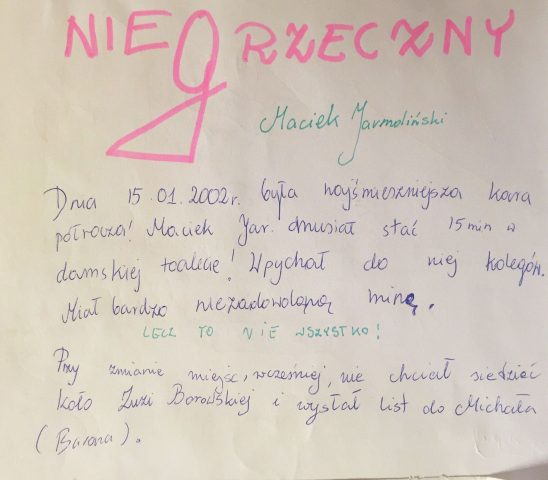 NIEGRZECZNY
Maciek Jarmoliński
Dnia 15.01.2002r. była najśmieszniejsza kara
półrocza! Maciek Jar. musiał stać 15 min w
damskiej toalecie! Wpychał do niej kolegów.
Miał bardzo niezadowoloną minę.
LECZ TO NIE WSZYSTKO!
Przy zmianie miejsc, wcześniej, nie chciał siedzieć
koło Zuzi Borowskiej i wysłał list do Michała
(Barana).